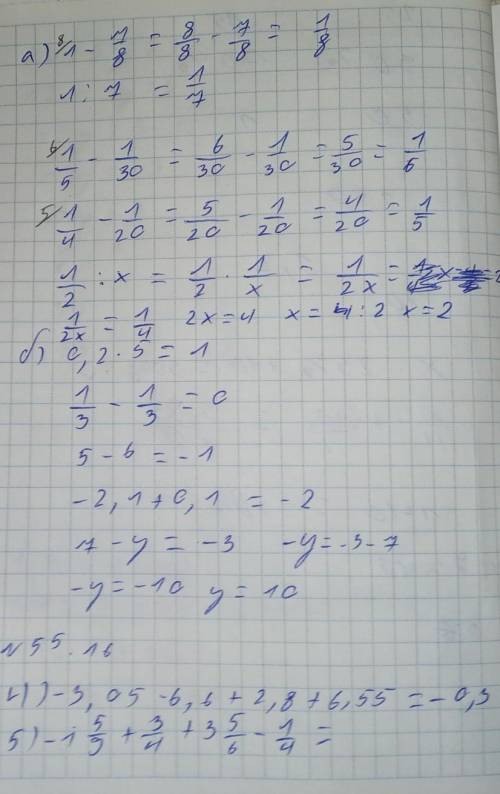 а) ⁸/1 - 7/8 = 8/8 - 7/8 = 1/8
1 : 7 = 1/7
⁶/1/5 - 1/30 = 6/30 - 1/30 = 5/30 = 1/6
⁵/1/4 - 1/20 = 5/20 - 1/20 = 4/20 = 1/5
1/2 : x = 1/2 · 1/x = 1/2x =
1/2x = 1/4 2x = 4 x = 4 : 2 x = 2
б) 0,2 · 5 = 1
1/3 - 1/3 = 0
5 - 6 = -1
-2,1 + 0,1 = -2
7 - y = -3 -y = -3 - 7
-y = -10 y = 10
N 55.16
4) -3,05 - 6,6 + 2,8 + 6,55 = -0,3
5) -1 5/9 + 3/4 + 3 5/6 - 1/4 =